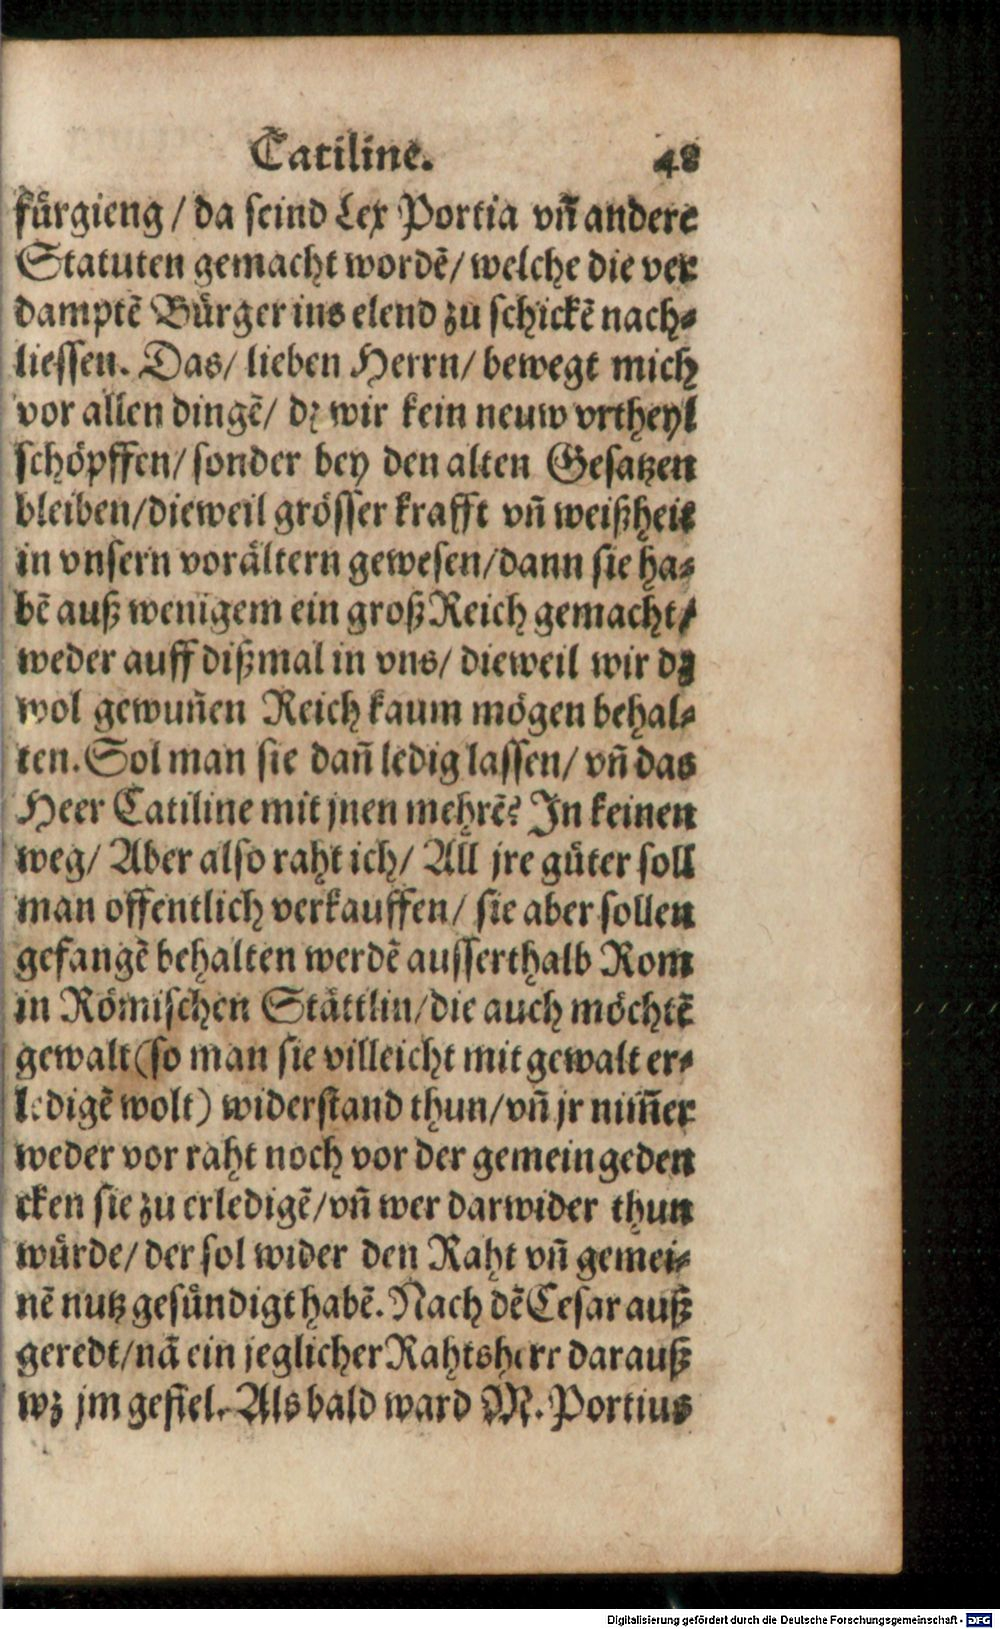 Catiline. 48
fürgieng / da seind Lex Portia vñ andere
Statuten gemacht wordẽ / welche die ver
damptẽ Bürger ins elend zu schickẽ nach⸗
liessen. Das / lieben Herrn / bewegt mich
vor allen dingẽ / dz wir kein neuw vrtheyl
schöpffen / sonder bey den alten Gesatzen
bleiben / dieweil grösser krafft vñ weißheit
in vnsern vorältern gewesen / dann sie ha⸗
bẽ auß wenigem ein groß Reich gemacht /
weder auff dißmal in vns / dieweil wir dz
wol gewuñen Reich kaum mögen behal⸗
ten. Sol man sie dañ ledig lassen / vñ das
Heer Catiline mit jnen mehrẽ? In keinen
weg / Aber also raht ich / All jre güter soll
man offentlich verkauffen / sie aber sollen
gefangẽ behalten werdẽ ausserthalb Rom
in Römischen Stättlin / die auch möchtẽ
gewalt (so man sie villeicht mit gewalt er⸗
ledigẽ wolt) widerstand thun / vñ jr nim̃er
weder vor raht noch vor der gemein geden
cken sie zu erledigẽ / vñ wer darwider thun
würde / der sol wider den Raht vñ gemei⸗
nẽ nutz gesündigt habẽ. Nach dẽ Cesar auß
geredt / nã ein jeglicher Rahtsherr darauß
wz jm gefiel. Als bald ward M. Portius
Digitalisierung gefördert durch die Deutsche Forschungsgemeinschaft - DFG